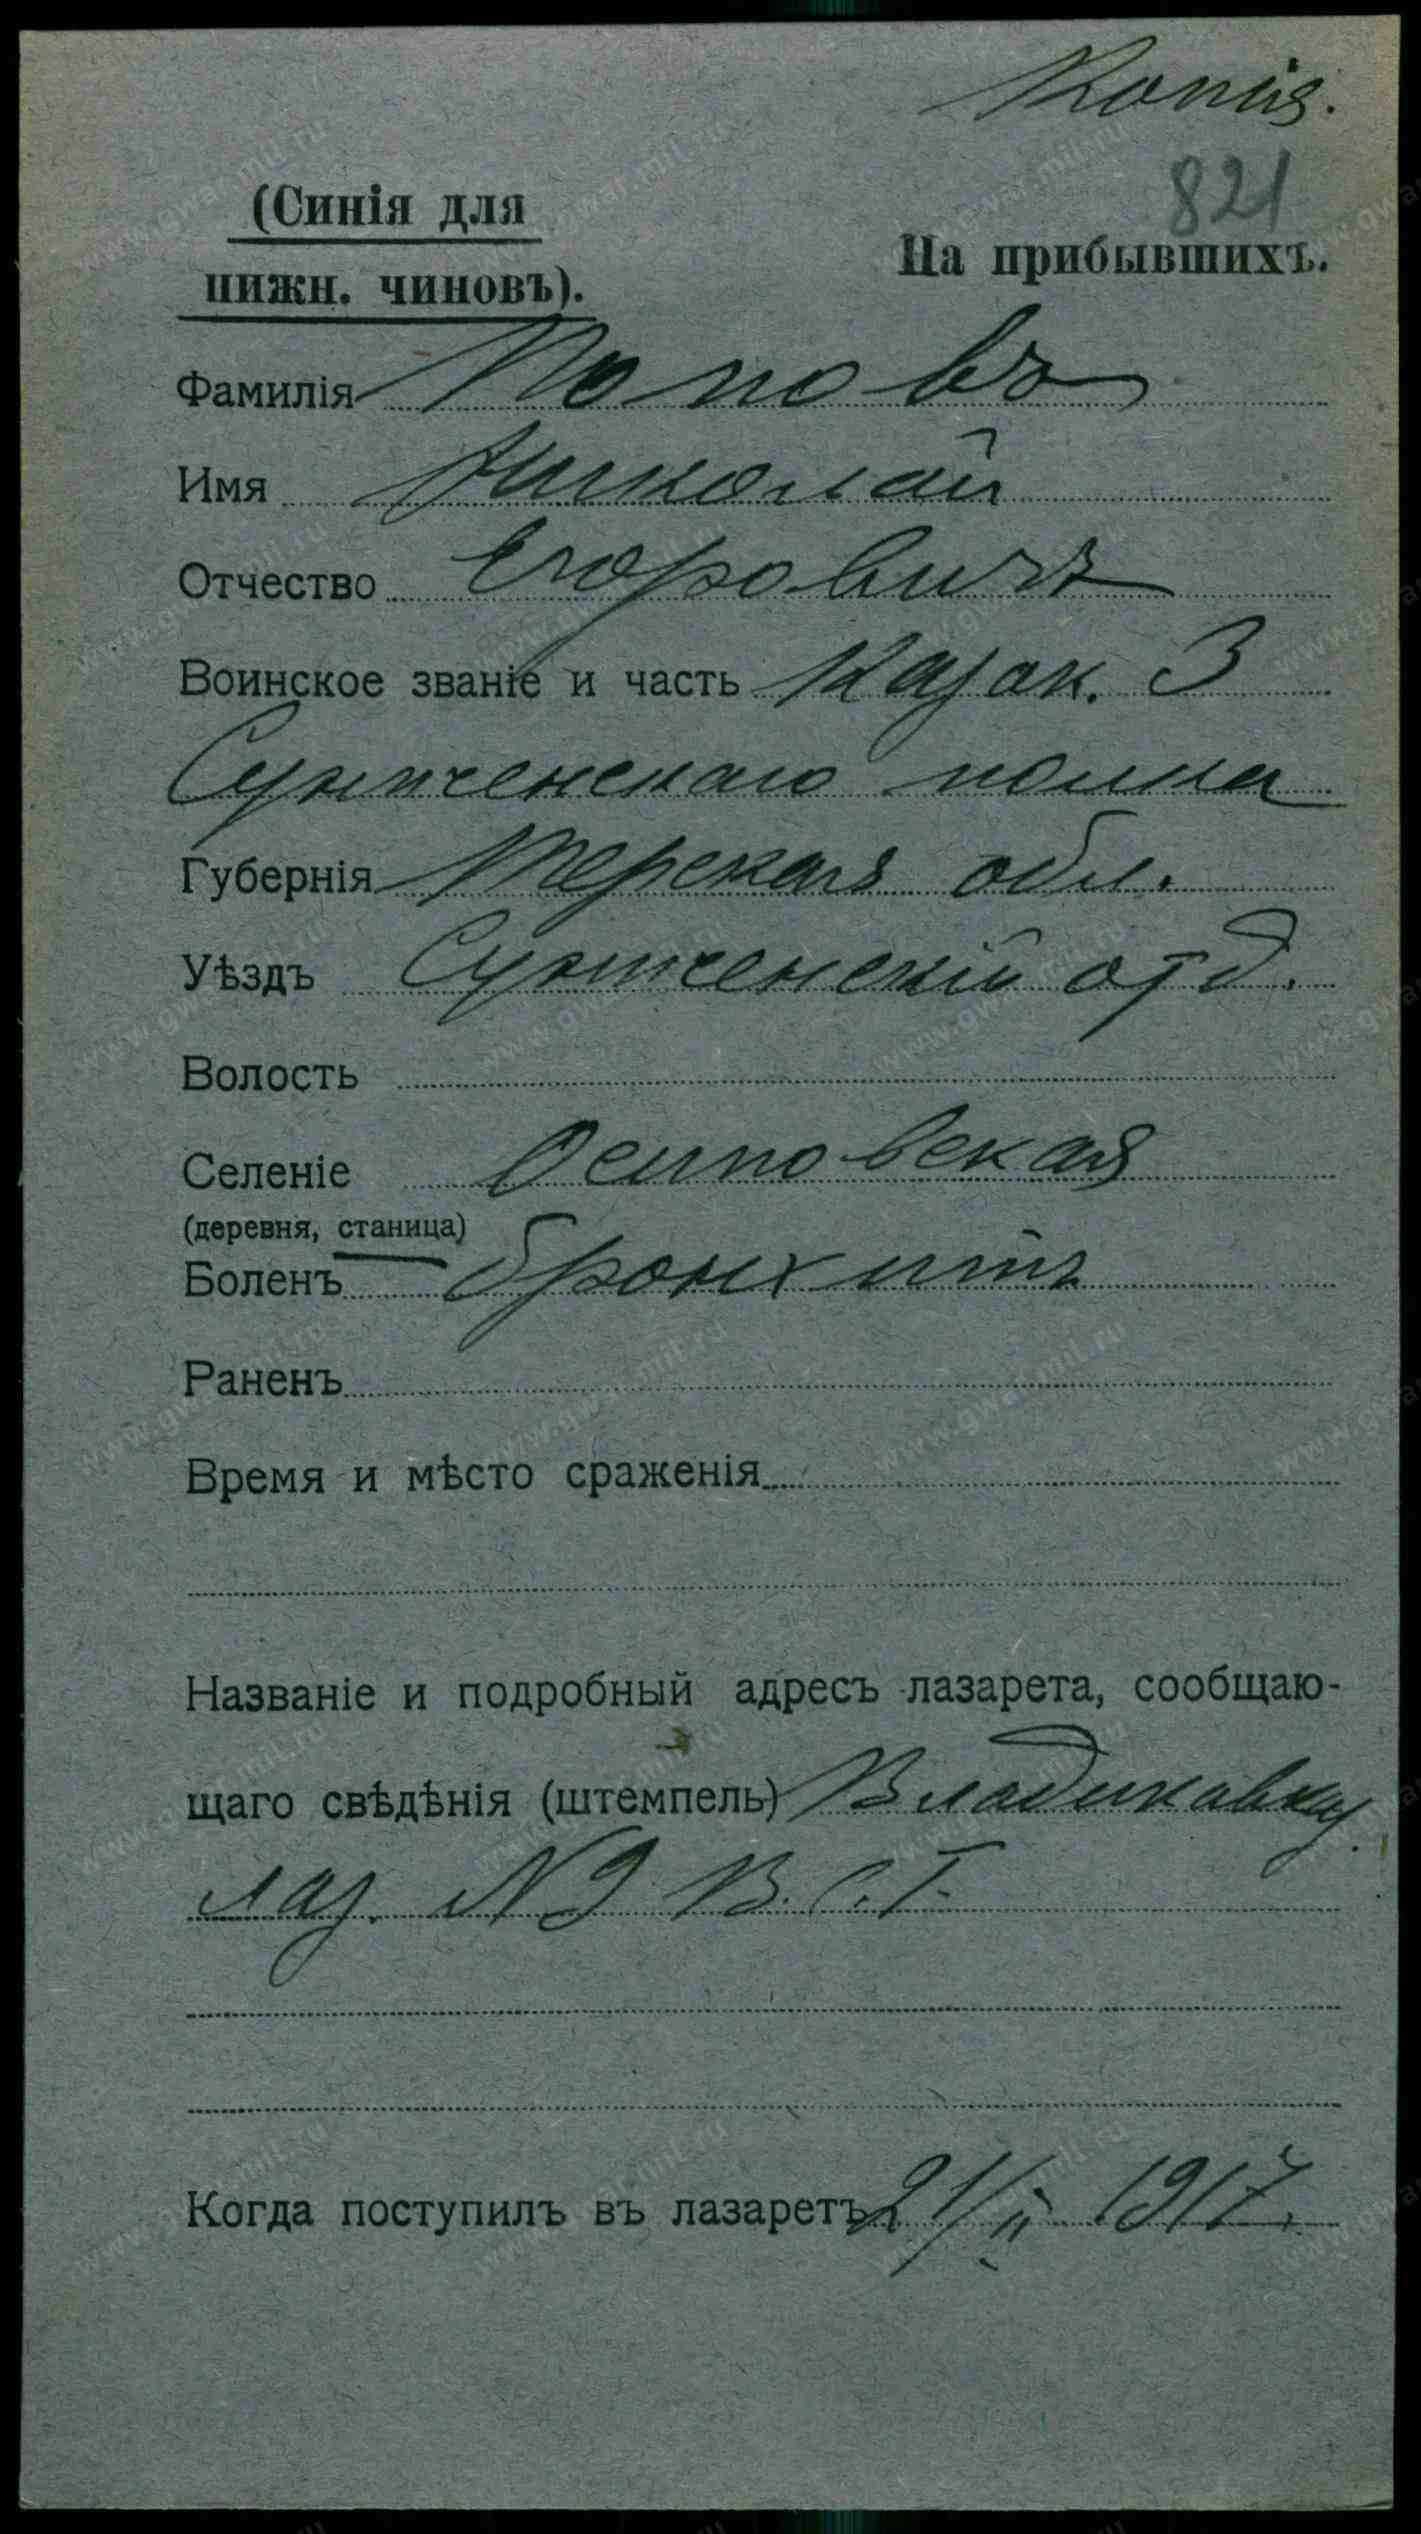 Копія.
821
(Синія для
нижн. чиновъ).
На прибывшихъ.
Фамилія Поповъ
Имя Николай
Отчество Егоровичъ
Воинское званіе и часть Казак. 3
Сунженскаго полка
Губернія Терская обл.
Уѣздъ Сунженскій отд.
Волость
Селеніе Осиповская
(деревня, станица)
Боленъ бронхитъ
Раненъ
Время и мѣсто сраженія
Названіе и подробный адресъ лазарета, сообщаю-
щаго свѣдѣнія (штемпель) Владикавказ.
лаз. N 9 В. С. Г.
Когда поступилъ въ лазаретъ 21/II 1917.
www.gwar.mil.ru